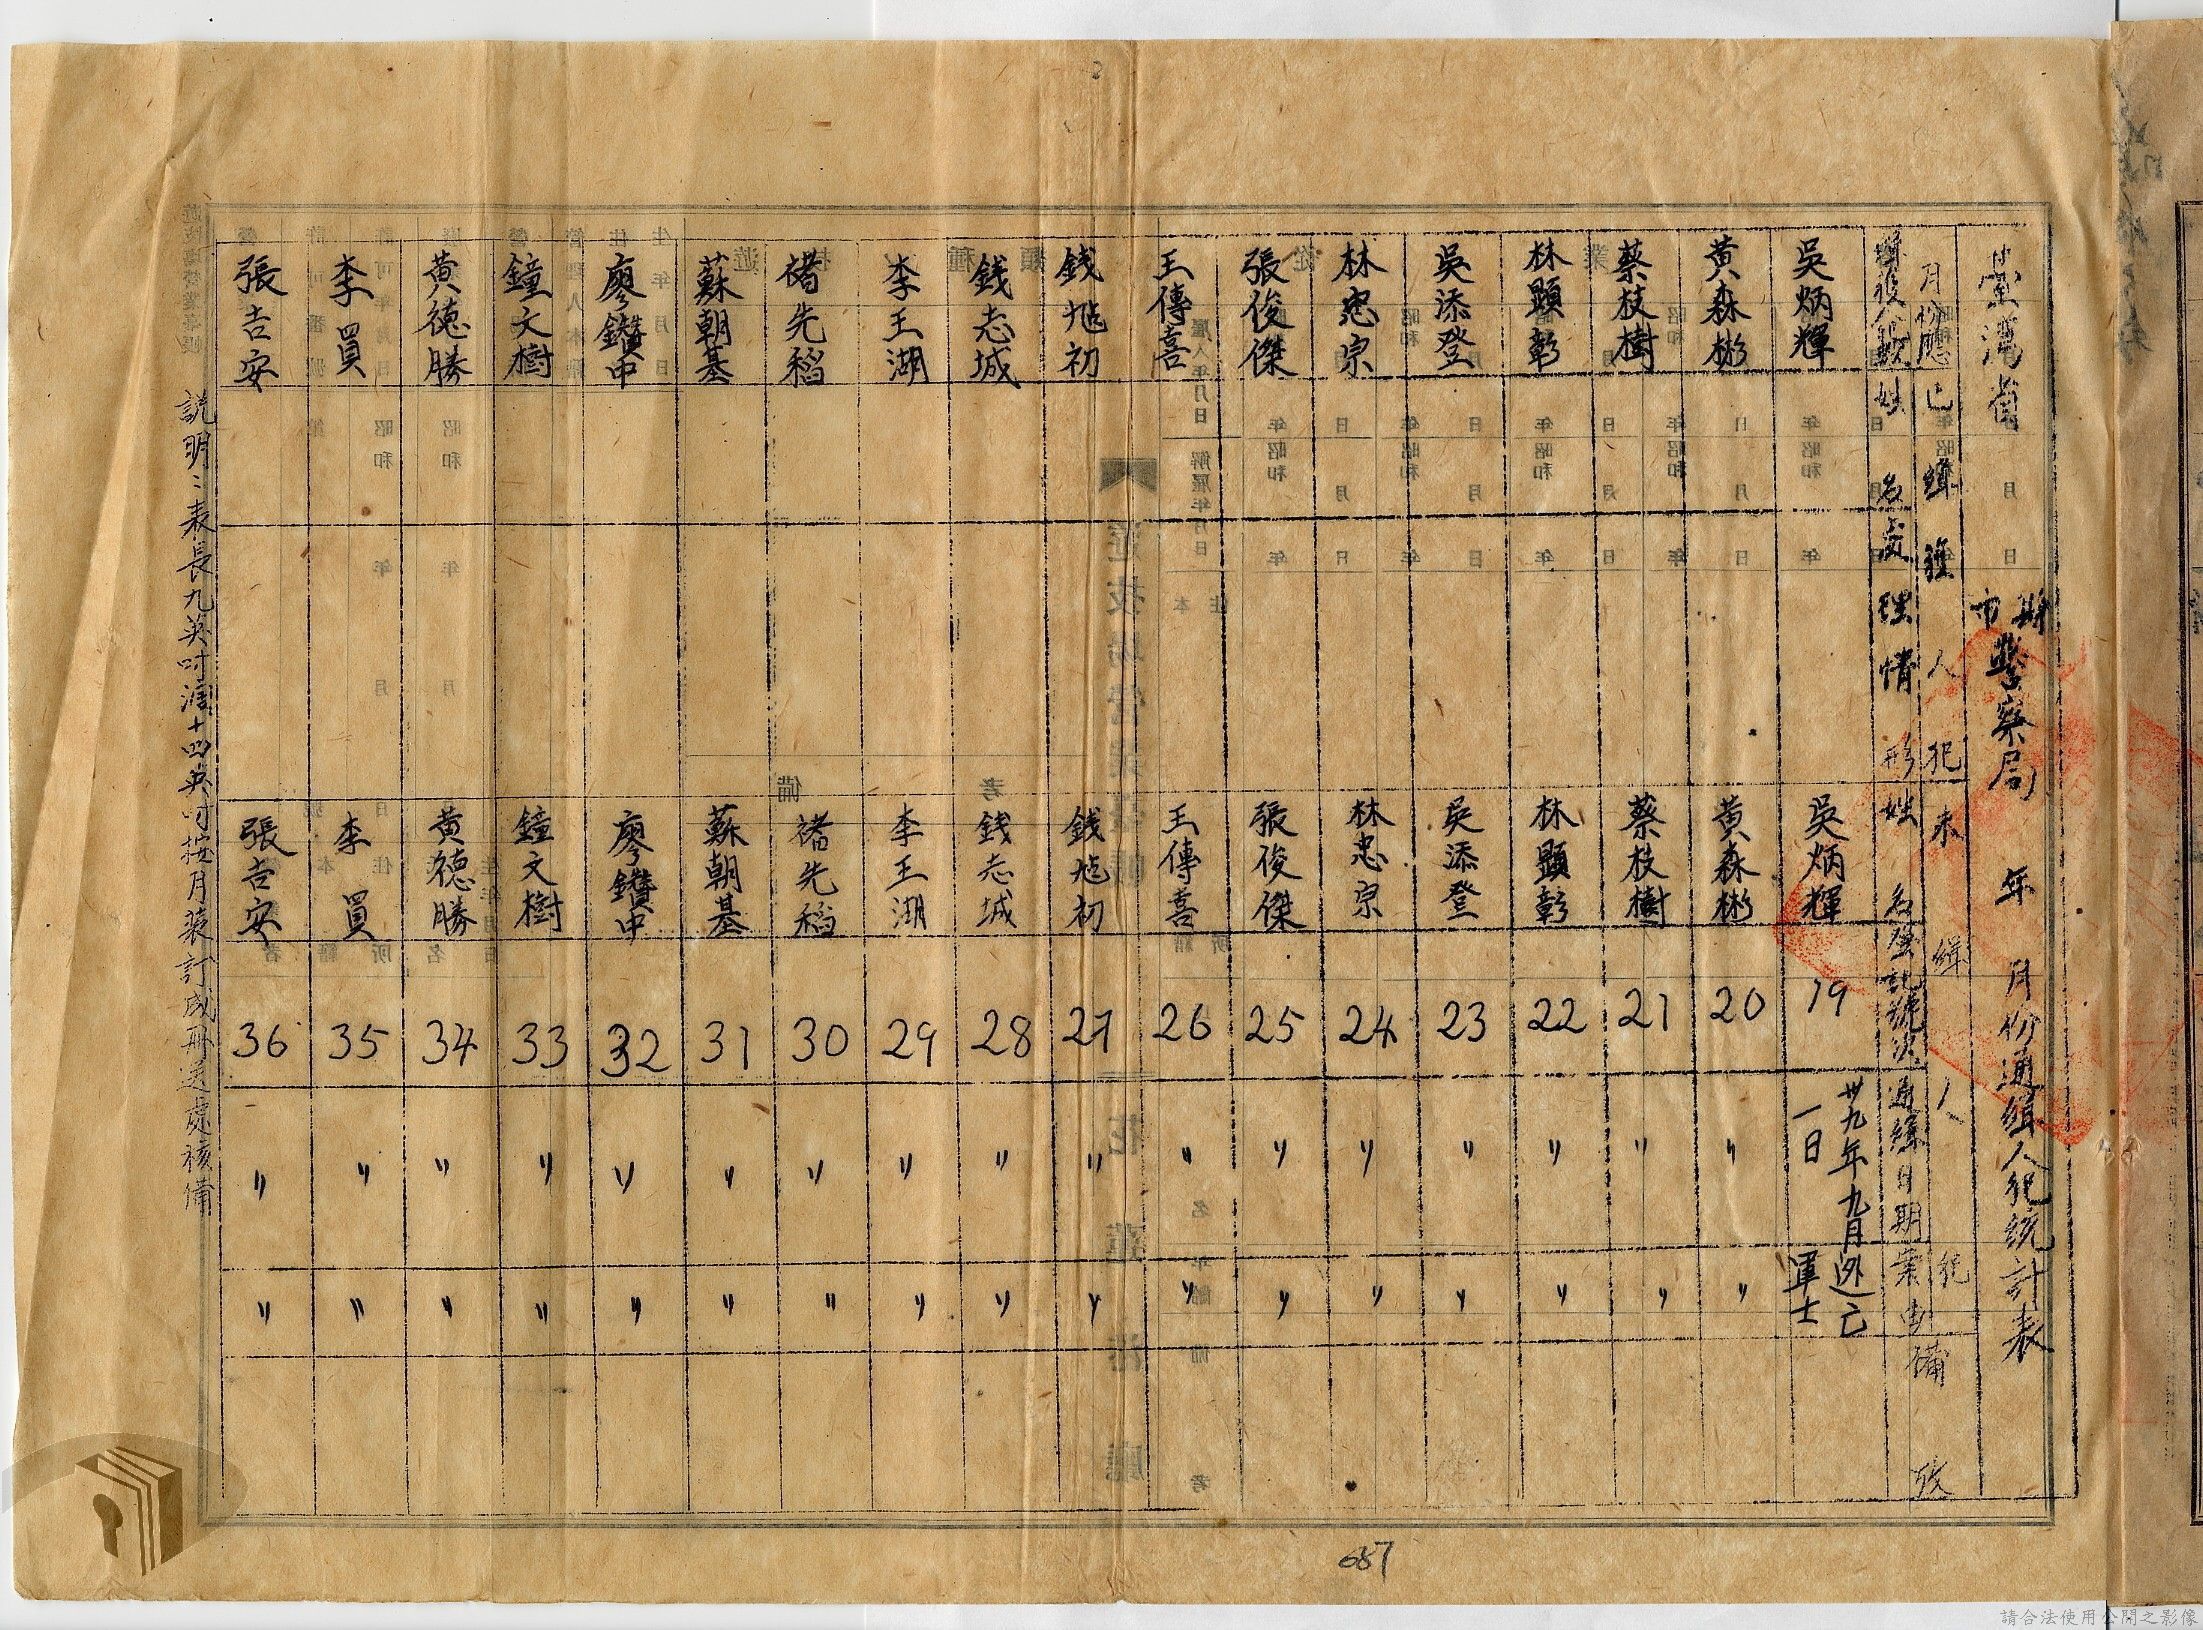 臺灣省 縣市警察局 年 月份通緝人犯統計表
月份應緝獲人數
已緝獲人犯
姓名
處理情形
未緝人犯
姓名
登記號次
通緝日期
案由
備攷
吳炳輝 吳炳輝 19 卅九年九月一日 逃亡軍士
黃森彬 黃森彬 20 〃 〃
蔡枝樹 蔡枝樹 21 〃 〃
林顯彰 林顯彰 22 〃 〃
吳添登 吳添登 23 〃 〃
林忠宗 林忠宗 24 〃 〃
張俊傑 張俊傑 25 〃 〃
王傳喜 王傳喜 26 〃 〃
錢旭初 錢旭初 27 〃 〃
錢志城 錢志城 28 〃 〃
李王湖 李王湖 29 〃 〃
褚先稻 褚先稻 30 〃 〃
蘇朝基 蘇朝基 31 〃 〃
廖鑽中 廖鑽中 32 〃 〃
鐘文樹 鐘文樹 33 〃 〃
黃德勝 黃德勝 34 〃 〃
李員 李員 35 〃 〃
張吉安 張吉安 36 〃 〃
說明：表長九英吋濶十四英吋按月裝訂成冊送處核備
687
請合法使用公開之影像